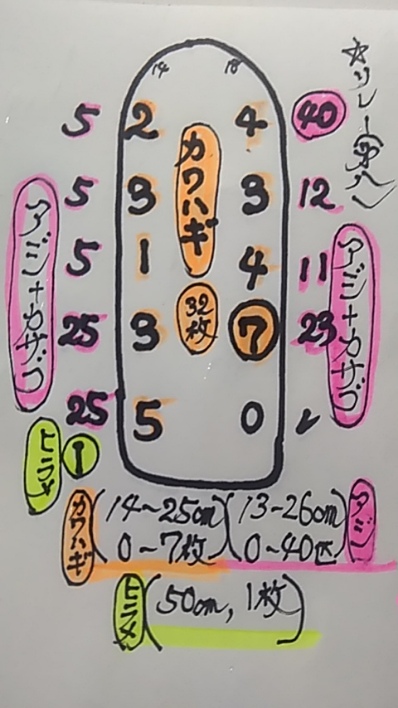 ☆リレー便へ
14 18
5 2 4 40
5 3 3 12
5 1 4 11
25 3 7 23
25 5 0 ✓
カワハギ
32枚
アジ+カサゴ
アジ+カサゴ
ヒラメ 1
カワハギ (14~25cm 0~7枚)
(13~26cm 0~40匹) アジ
ヒラメ (50cm, 1枚)